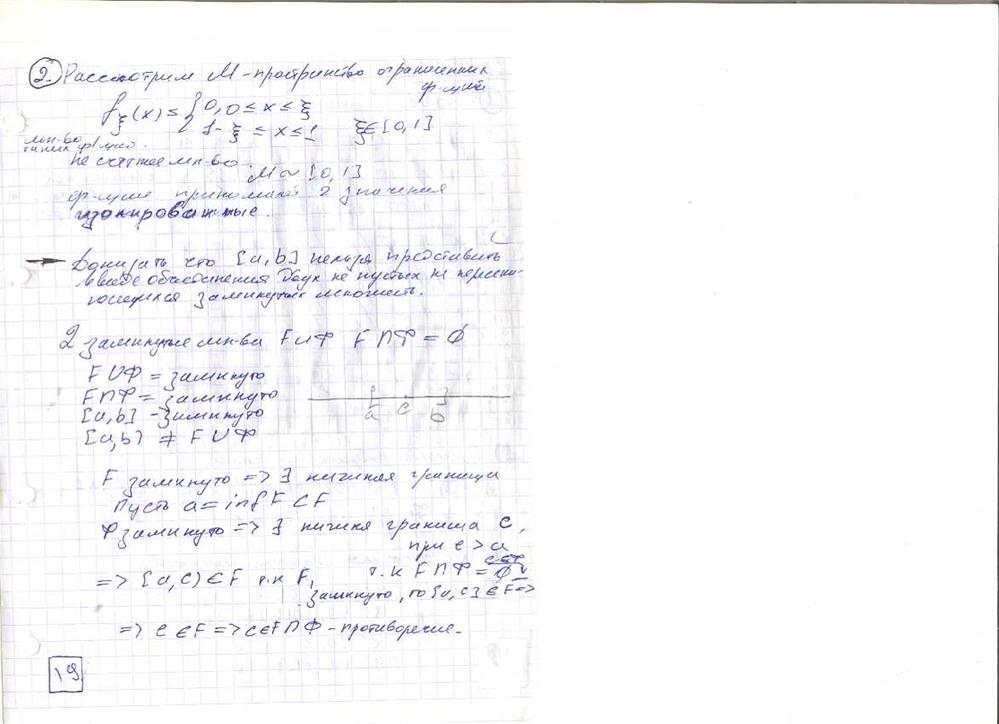 2. Рассмотрим M-простр-нство ограниченных
ф-ций
f ξ (x) ≤ { 0, 0 ≤ x ≤ ξ
1 - ξ ≤ x ≤ 1 ξ ∈ [0,1]
мн-во
таких ф-ций.
не счетное мн-во.
M ~ [0,1]
ф-ции принимают 2 значения
изолированные.
→ Доказать что [a,b] нельзя представить
в виде объединения двух не пустых не пересека-
ющихся замкнутых множеств.
2 замкнутые мн-ва F∪Φ F∩Φ = ∅
F∪Φ = замкнуто
F∩Φ = замкнуто
[a,b] - замкнуто
[a,b) ≠ F∪Φ
a c b
F замкнуто => ∃ нижняя граница
Пусть a = inf F ⊂ F
Φ замкнуто => ∃ нижня граница c,
при c > a
=> [a,c) ∈ F т.к F, т.к F∩Φ = ∅ и
c∈Φ
замкнуто, то [a,c] ∈ F =>
=> c ∈ F => c∈F∩Φ - противоречие.
19